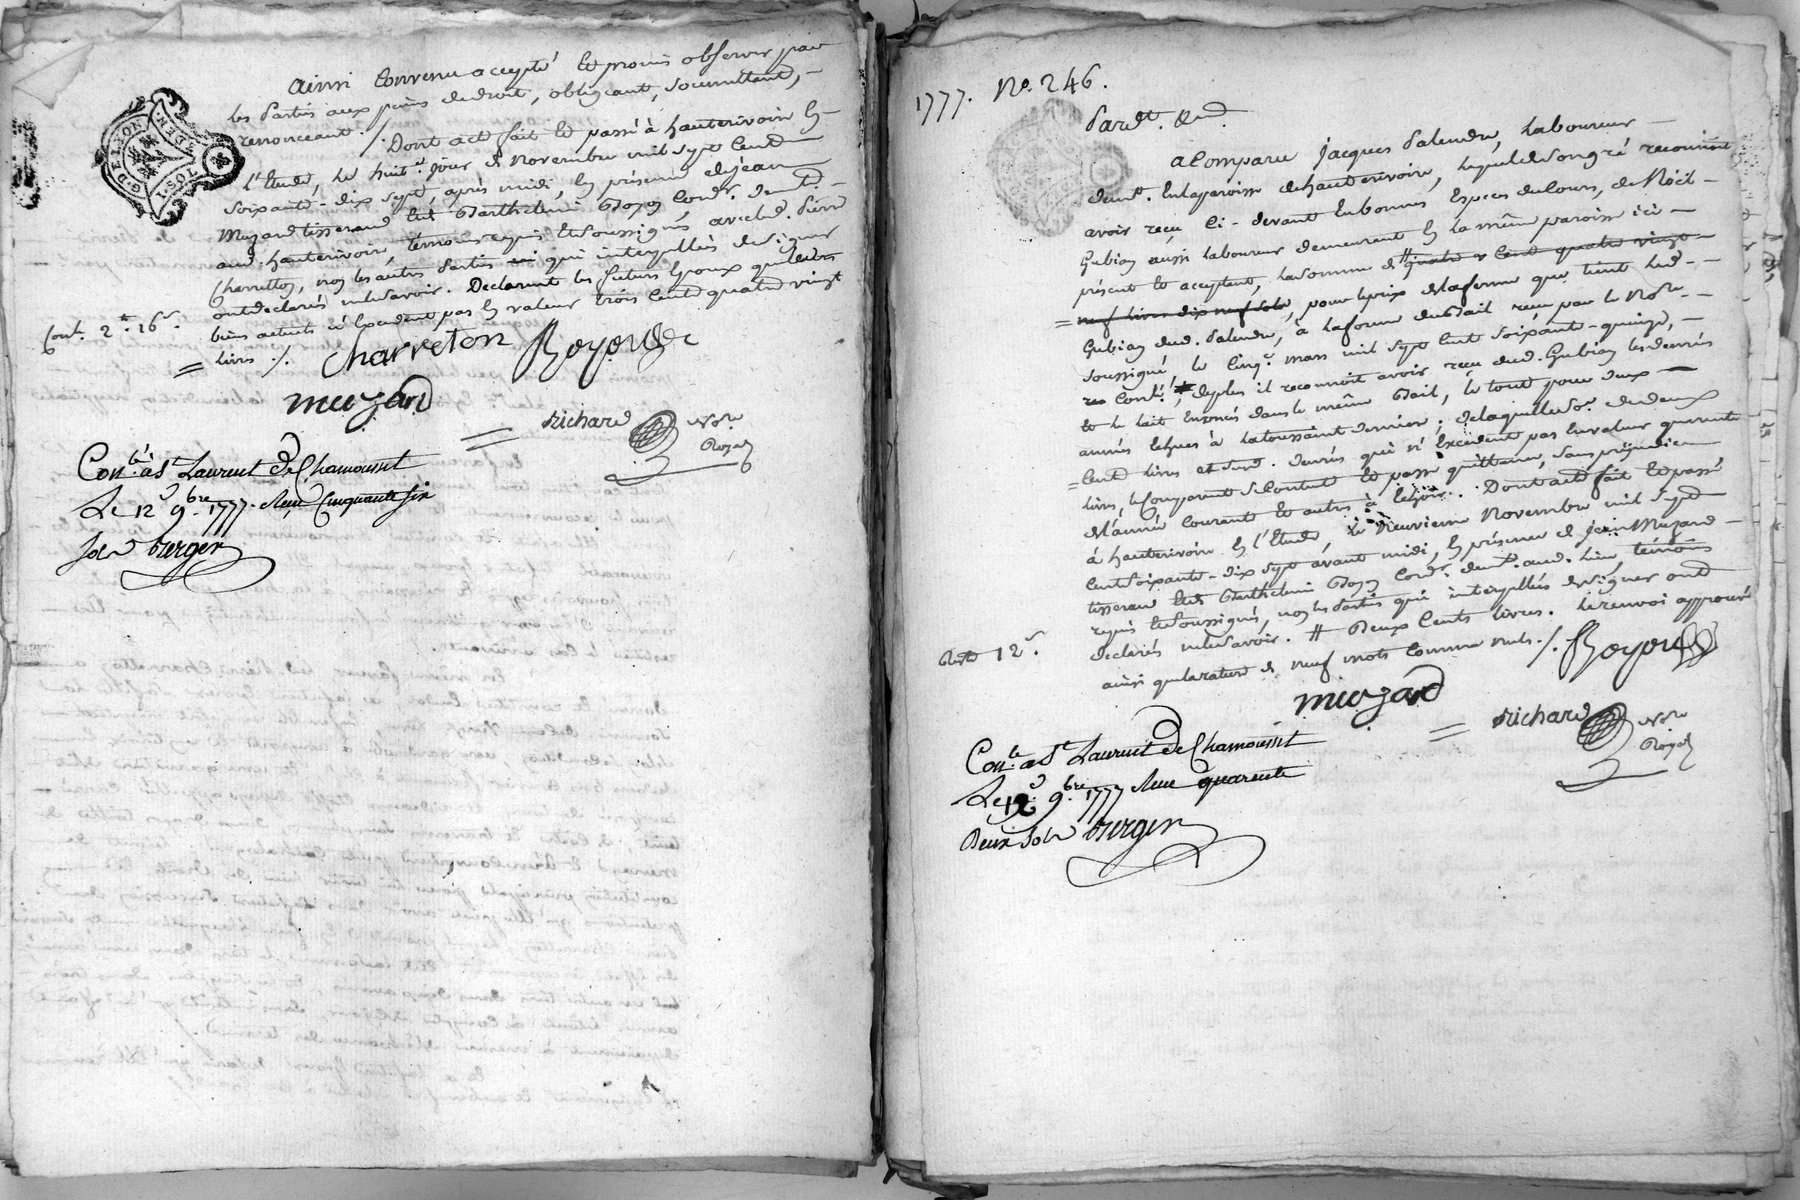 ainsi Convenu accepté et promis observer par
les Partis aux peines de droit, obligeant, soumettant, -
renonceant ./. Dont acte fait et passé à hauterivoire En
l'Etude, le huit.e Jour de Novembre mil sept Cent
soixante-dix sept, après midi, En présence de Jean
Muzard tisserand Et de Barthelemi Boyon Cord.r dem.t
aud. hauterivoire, témoins requis et soussignés avec led. Pierre
Charretton, non les autres Parties qui interpellées de signer
ont déclarés ne le savoir. Declarent les futurs Epoux que leurs
biens actuels n'Excedent pas En valeur trois Cent quatre vingt
= livres ./.
Cont. 2tt. 16s.
Charreton Boyon
muzard
= richard Not.re Royal
Con.lé à S.t Laurent De Chamousset
Le 12 9.bre 1777. Reçu Cinquante six
sols berger
G. DE LYON
1. SOL
1777. No. 246.
Pard.t. &c.
a Comparu Jacques Palendre, Laboureur -
dem.t En la paroisse de hauterivoire, lequel de son gré reconnoit
avoir reçu Ci-devant En bonnes Especes de Cours, de Noël -
Gubian aussi Laboureur demeurant En la même paroisse ici -
présent et acceptant, la somme de # quatre Cent quatre vingt -
= neuf livres dix neuf sols, pour le prix de la ferme que tient led. -
Gubian dud. Palendre, à la forme du Bail reçu par le No.re -
soussigné, le Cinq.e mars mil sept Cent soixante-quinze, -
Con.lé; de plus il reconnoit avoir reçu dud. Gubian les denrées
et le lait Enoncés dans le même Bail, le tout pour deux -
années Echues à la toussaint dernier; de laquelle so.e de deux
= Cent livres et desd. denrées qui n'Excedent pas En valeur quarente
livres, le Comparant se Contente et passe quittance, sans préjudice
de l'année Courante et autres à Echoir. Dont acte fait et passé
à hauterivoire En l'Etude, le Neuvieme Novembre mil sept
Cent soixante-dix sept avant midi, En présence de Jean Muzard -
tisserand Et de Barthelemi Boyon Cord.r dem.t aud. lieu, témoins
requis et soussignés, non les Parties qui interpellées de signer ont
declarés ne le savoir. # Deux Cents livres. le renvoi approuvé
ainsi que la rature de neuf mots Comme nuls ./. Boyon
Reste 12s.
muzard
= richard Not.re Royal
Con.lé à S.t Laurent De Chamousset
Le 12 9.bre 1777 Reçu quarente
Deux sols berger